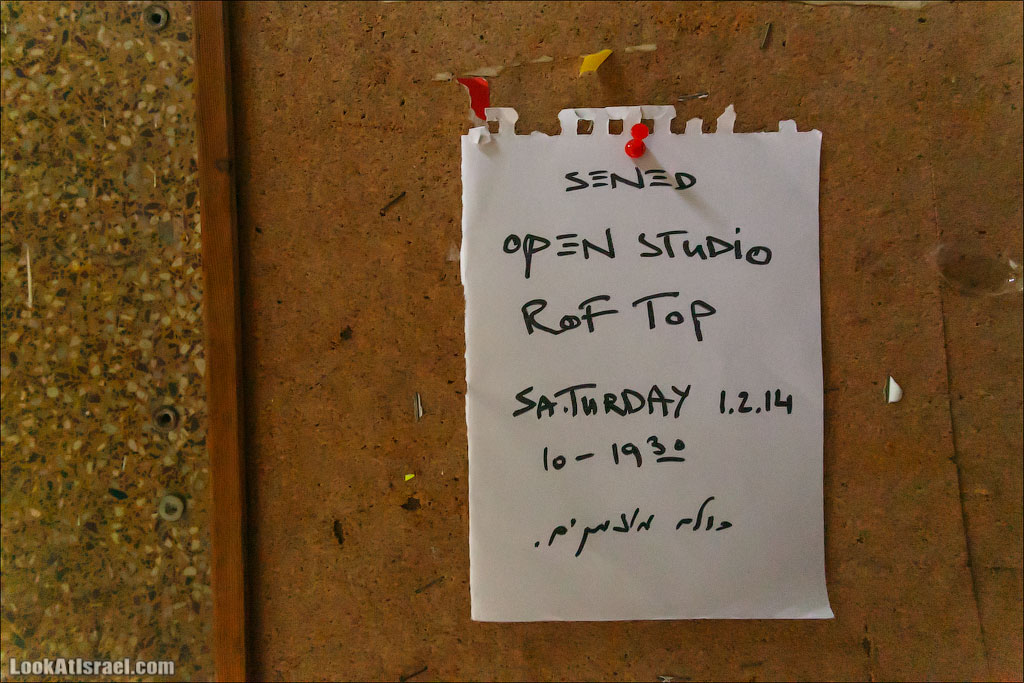 SENED
OPEN STUDIO
ROF TOP
SATURDAY 1.2.14
10 - 19 30
כולם מוזמנים.
LookAtIsrael.com